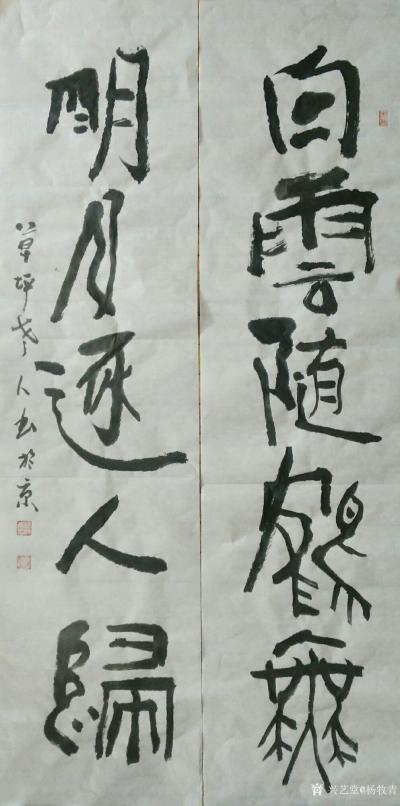 白雲随鶴舞
明月逐人歸
八草坪老人书於京
兴艺堂@杨牧青